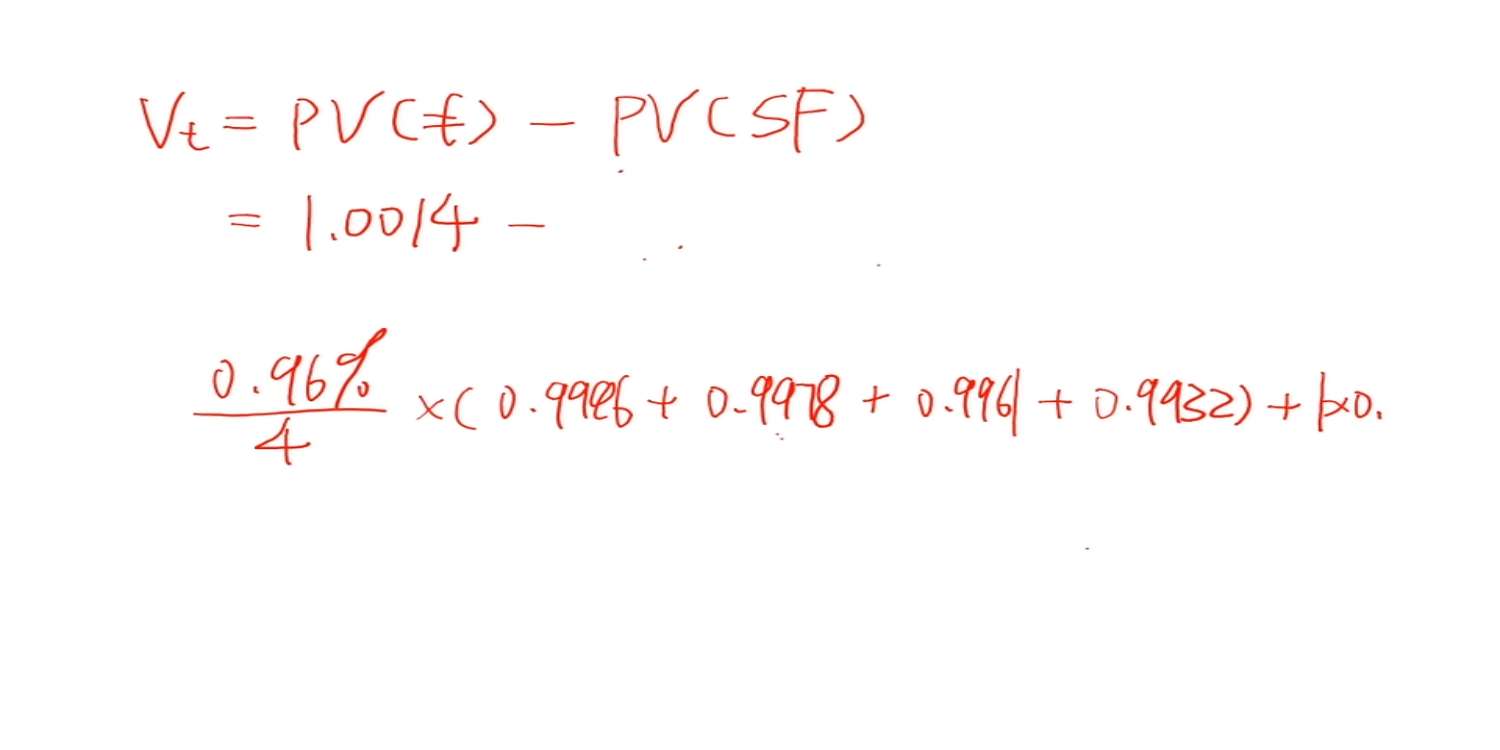 Vt = PV(£) - PV(SF)
= 1.0014 -
0.96%/4 ×( 0.9986 + 0.9978 + 0.9961 + 0.9932) + 1×0.